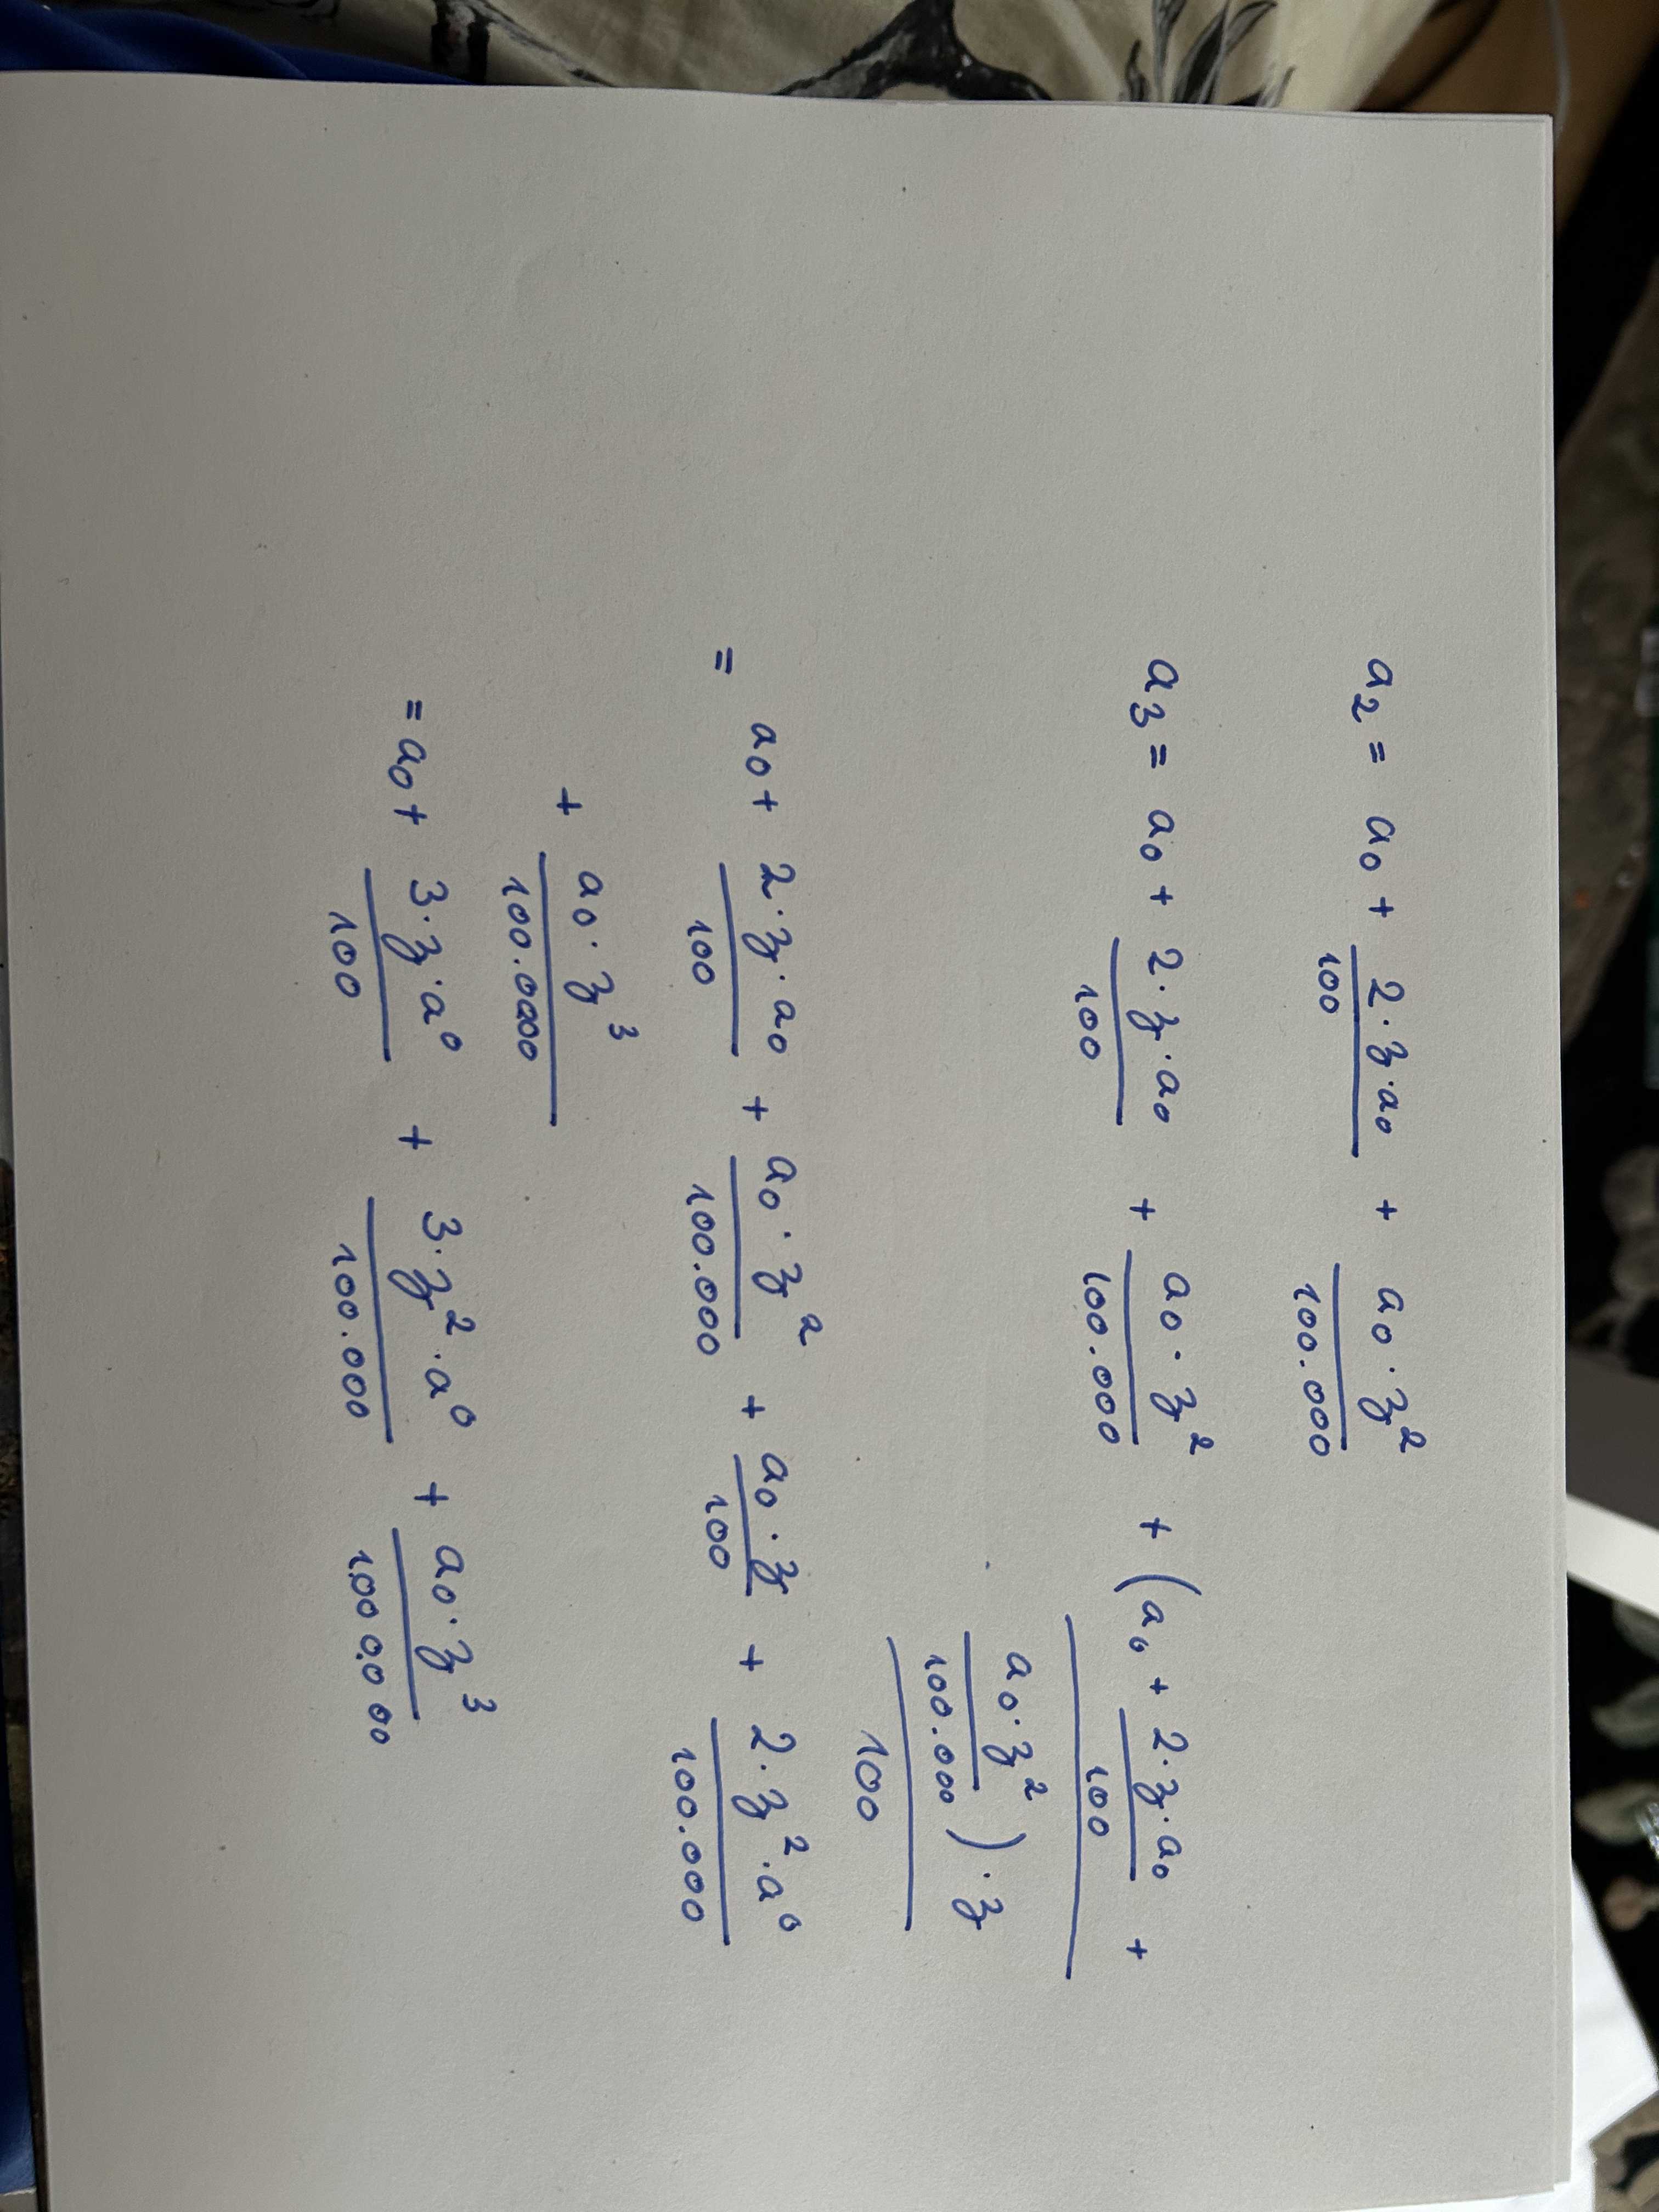 a₂ = a₀ + 2·z·a₀/100 + a₀·z²/100.000
a₃ = a₀ + 2·z·a₀/100 + a₀·z²/100.000 + (a₀ + 2·z·a₀/100 +
a₀·z²/100.000)·z
100
= a₀ + 2·z·a₀/100 + a₀·z²/100.000 + a₀·z/100 + 2·z²·a⁰/100.000
+ a₀·z³/100.0000
= a₀ + 3·z·a⁰/100 + 3·z²·a⁰/100.000 + a₀·z³/1.000.000